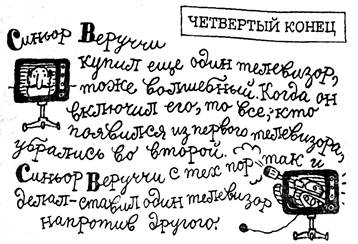 ЧЕТВЕРТЫЙ КОНЕЦ
Синьор Веруччи
купил еще один телевизор,
тоже волшебный. Когда он
включил его, то все, кто
появился из первого телевизора,
убрались во второй.
Синьор Веруччи с тех пор так и
делал - ставил один телевизор
напротив другого.